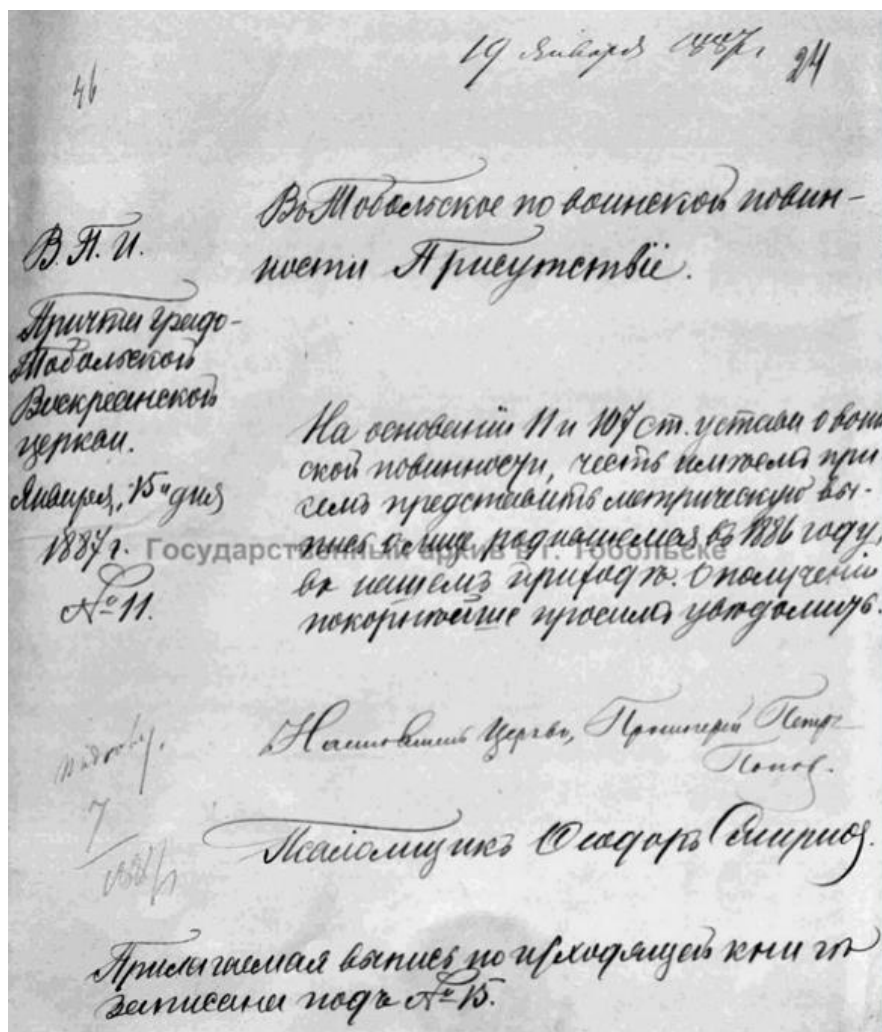 19 Января 1887 г.
24
46
В. П. И.
Причта градо-
Тобольской
Воскресенской
церкви.
Января, 15" дня
1887 г.
№ 11.
Въ Тобольское по воинской повин-
ности Присутствіе.
На основаніи 11 и 107 ст. устава о воин
ской повинности, честь имѣемъ при
семъ представить метрическую вы-
пись о лице родившемся въ 1886 году,
въ нашемъ приходѣ. О полученіи
покорнѣйше просимъ увѣдомить.
Государственный архив в г. Тобольске
Настоятель Церкви, Протоіерей Петръ
Попов.
7
1887
Псаломщикъ Ѳеодоръ Смирнов.
Прилагаемая выпись по исходящей книгѣ
записана подъ № 15.